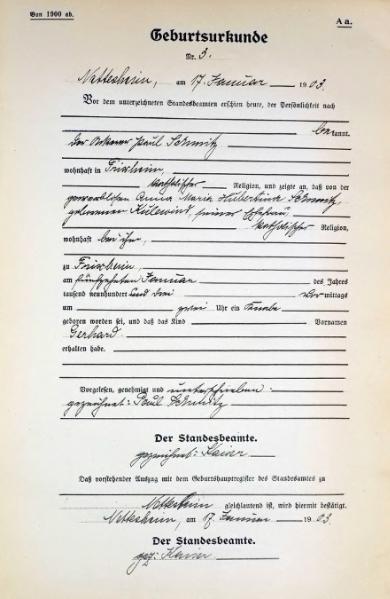 Von 1900 ab.
A a.
Geburtsurkunde
Nr. 3.
Nettesheim, am 17. Januar 1903.
Vor dem unterzeichneten Standesbeamten erschien heute, der Persönlichkeit nach
kannt.
der Ackerer Paul Schmitz
wohnhaft in Frixheim,
katholischer Religion, und zeigte an, daß von der
Anna Maria Hubertina Schmitz,
geborenen seiner Ehefrau
katholischer Religion,
wohnhaft bei ihm,
zu Frixheim
am fünfzehnten Januar des Jahres
tausend neunhundert und drei Vormittags
um zwei Uhr ein Knabe
geboren worden sei, und daß das Kind Vornamen
Gerhard
erhalten habe.
Vorgelesen, genehmigt und unterschrieben
gezeichnet: Paul Schmitz
Der Standesbeamte.
gezeichnet:
Daß vorstehender Auszug mit dem Geburtshauptregister des Standesamts zu
Nettesheim gleichlautend ist, wird hiermit bestätigt.
Nettesheim, am 17. Januar 1903.
Der Standesbeamte.
gez: